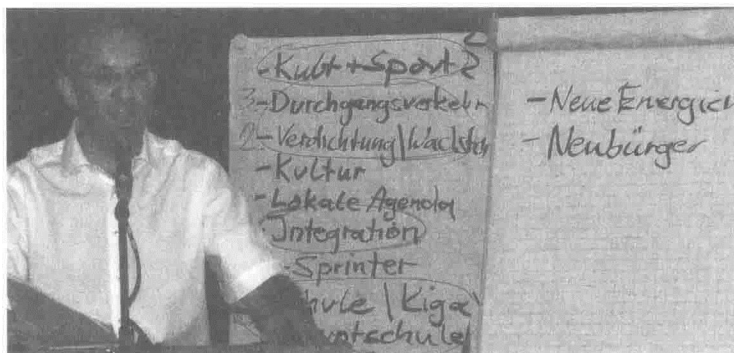 - Kult + Sport 2
3 - Durchgangsverkehr
2 - Verdichtung | Wachstum
- Kultur
- Lokale Agenda
Integration
- Sprinter
Schule | Kiga
Hauptschule
- Neue Energien
- Neubürger